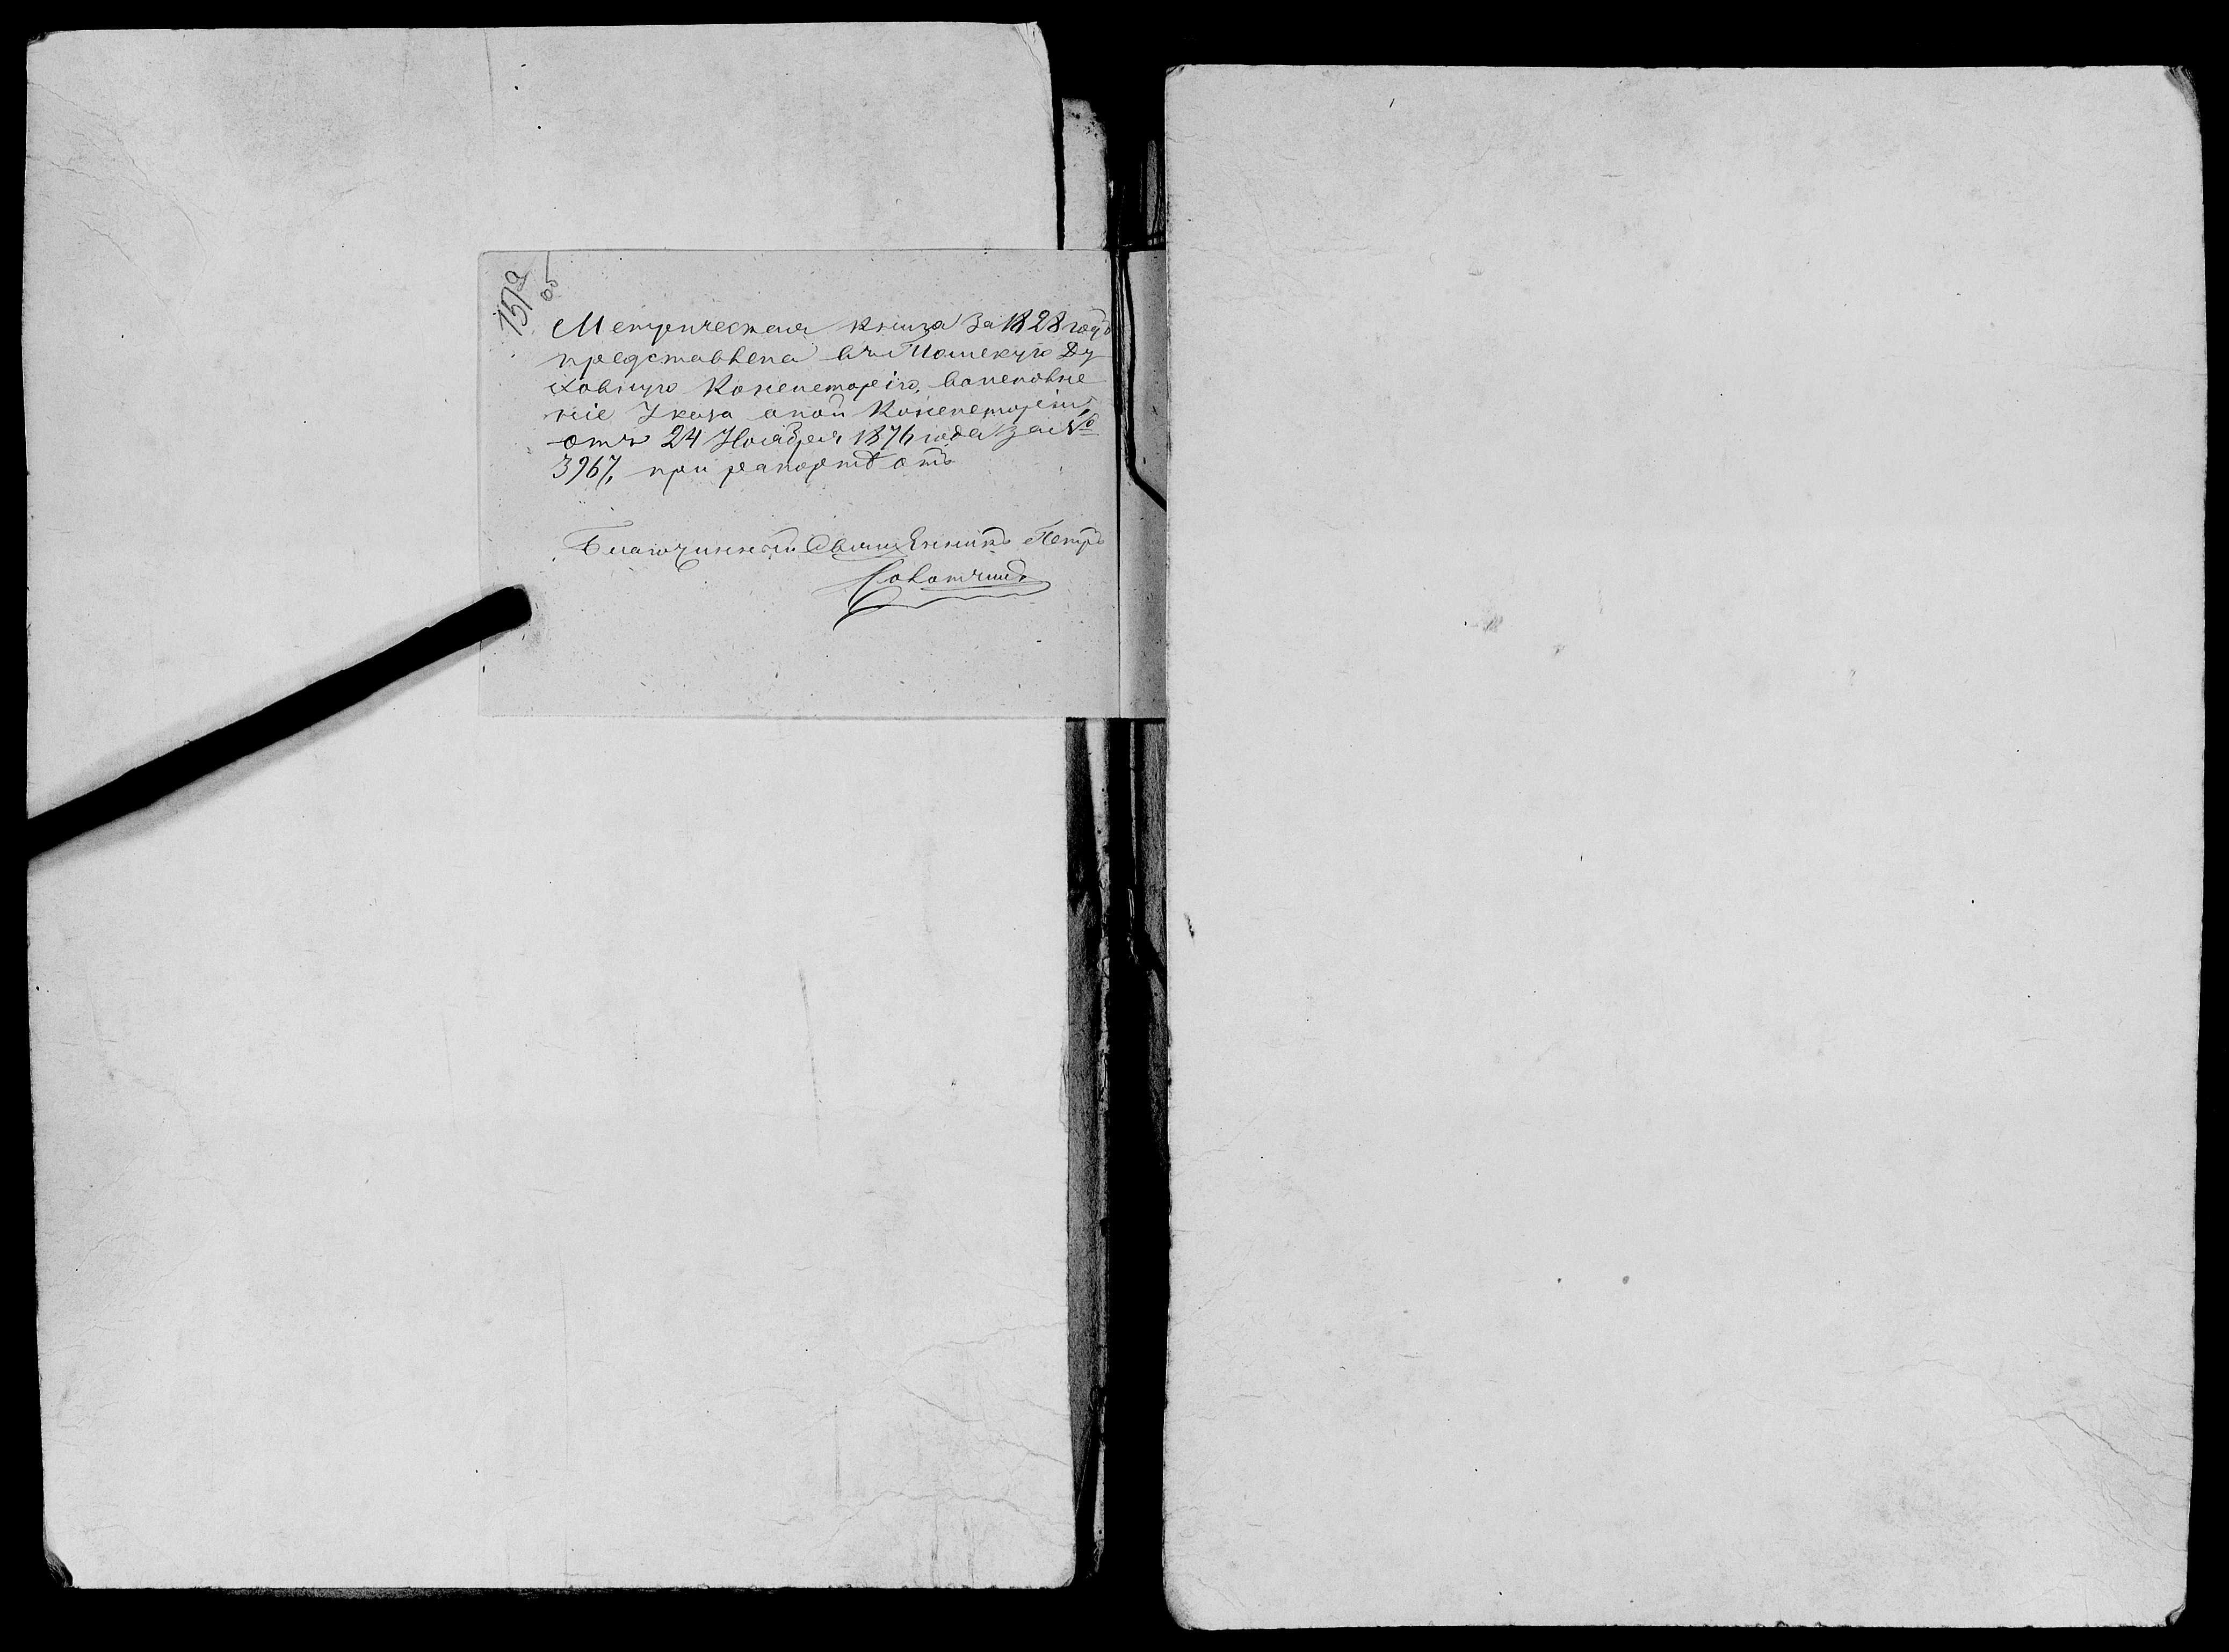 157 об
Метрическая книга за 1828 годъ
представлена въ Томскую Ду-
ховную Консисторію, воисполне
ніе Указа оной Консисторіи,
отъ 24 Ноября 1876 года за №
3967, при рапортѣ отъ
Благочинный Священникъ Петръ